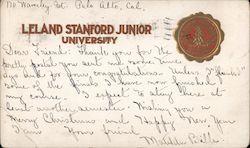 Waverley St. Palo Alto, Cal.
LELAND STANFORD JUNIOR
UNIVERSITY
Dear Friend: Thank you for the
pretty postal you sent me some time
ago and for your congratulations. Unless I "flunk"
some of the finals I have now finished
my course. I expect to stay here at
least another semester. Wishing you a
Merry Christmas and Happy New Year
I am Your friend